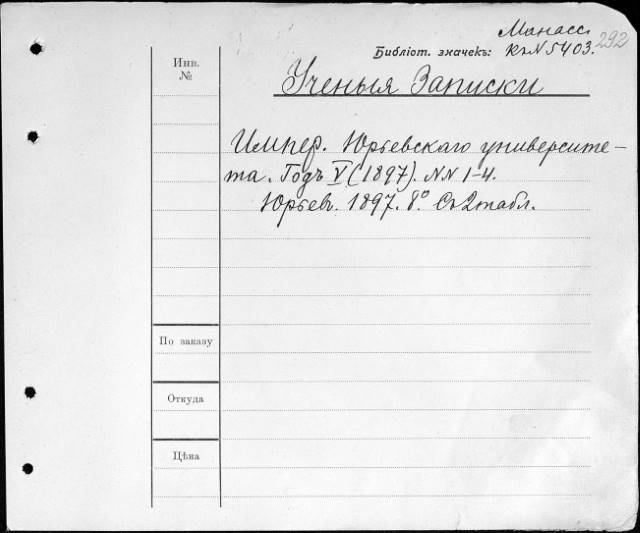 Манасс.
292
Библіот. значекъ: КъN5403.
Инв.
№
Ученыя Записки
Импер. Юрьевскаго университе-
та. Годъ V (1897). NN 1-4.
Юрьев. 1897. 8º. Съ 2 табл.
По заказу
Откуда
Цѣна